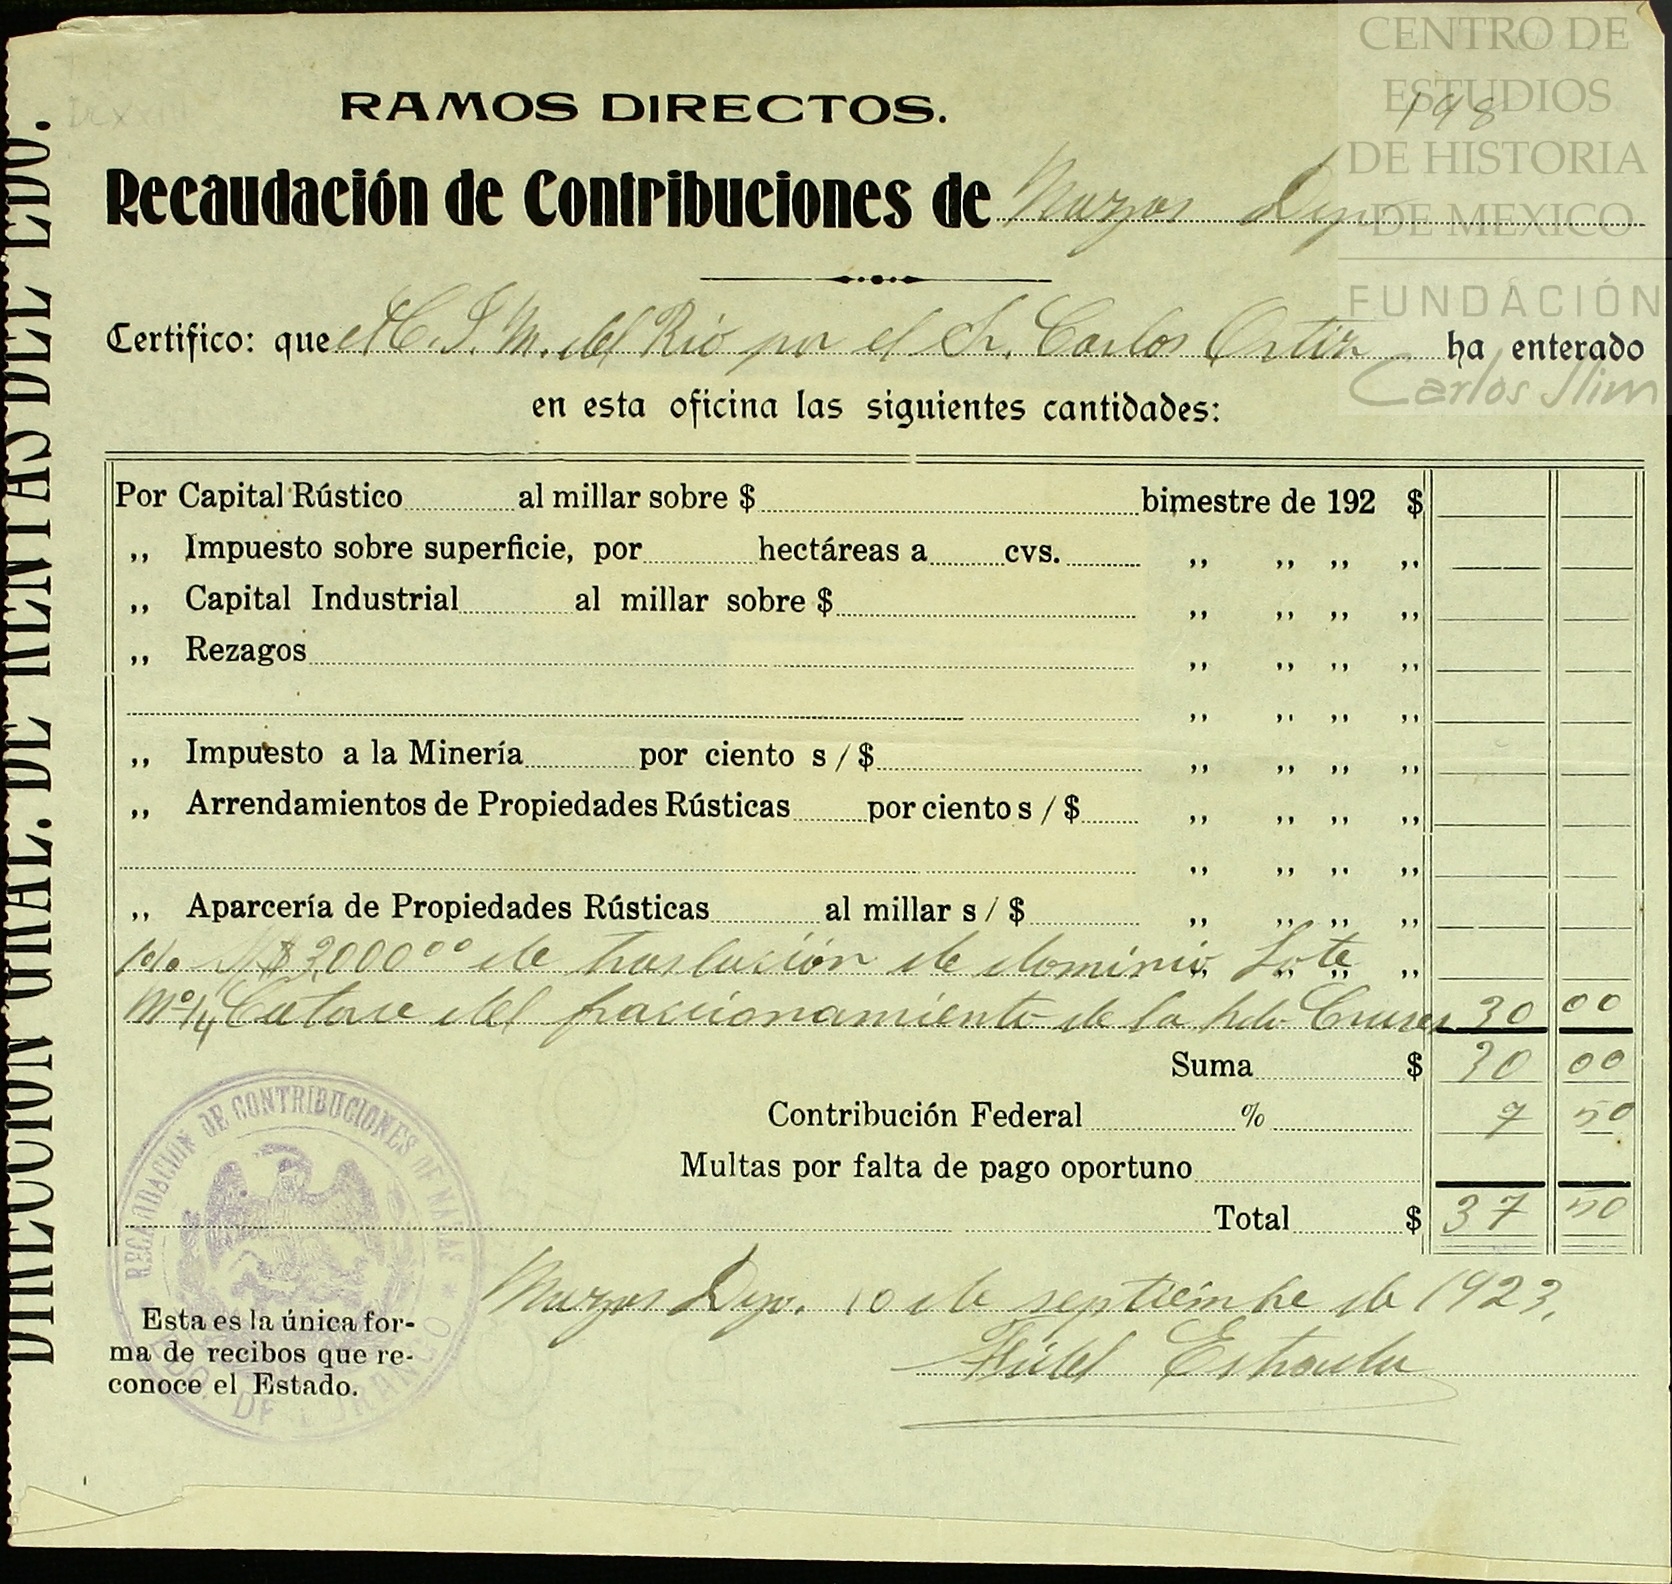 CENTRO DE
ESTUDIOS
DE HISTORIA
DE MEXICO
FUNDACIÓN
Carlos Slim
198
DIRECCION GRAL. DE RENTAS DEL EDO.
RAMOS DIRECTOS.
Recaudación de Contribuciones de Nazas Dgo
Certifico: que el C. J. M. del Rio por el Sr. Carlos Ortiz ha enterado
en esta oficina las siguientes cantidades:
Por Capital Rústico al millar sobre $ bimestre de 192 $
„ Impuesto sobre superficie, por hectáreas a cvs. „ „ „ „
„ Capital Industrial al millar sobre $ „ „ „ „
„ Rezagos „ „ „ „
„ „ „ „
„ Impuesto a la Minería por ciento s/$ „ „ „ „
„ Arrendamientos de Propiedades Rústicas por ciento s/$ „ „ „ „
„ „ „ „
„ Aparcería de Propiedades Rústicas al millar s/$ „ „ „ „
$2,000 00 de traslación de dominio Lote „ „ „ „
14 Catorce del fraccionamiento de la Cruces 30 00
Suma $ 30 00
Contribución Federal % 7 50
Multas por falta de pago oportuno
Total $ 37 50
Nazas Dgo. 10 de septiembre de 1923.
Fidel Estrada
RECAUDACION DE CONTRIBUCIONES DE NAZAS
EDO. DE DURANGO
Esta es la única for-
ma de recibos que re-
conoce el Estado.